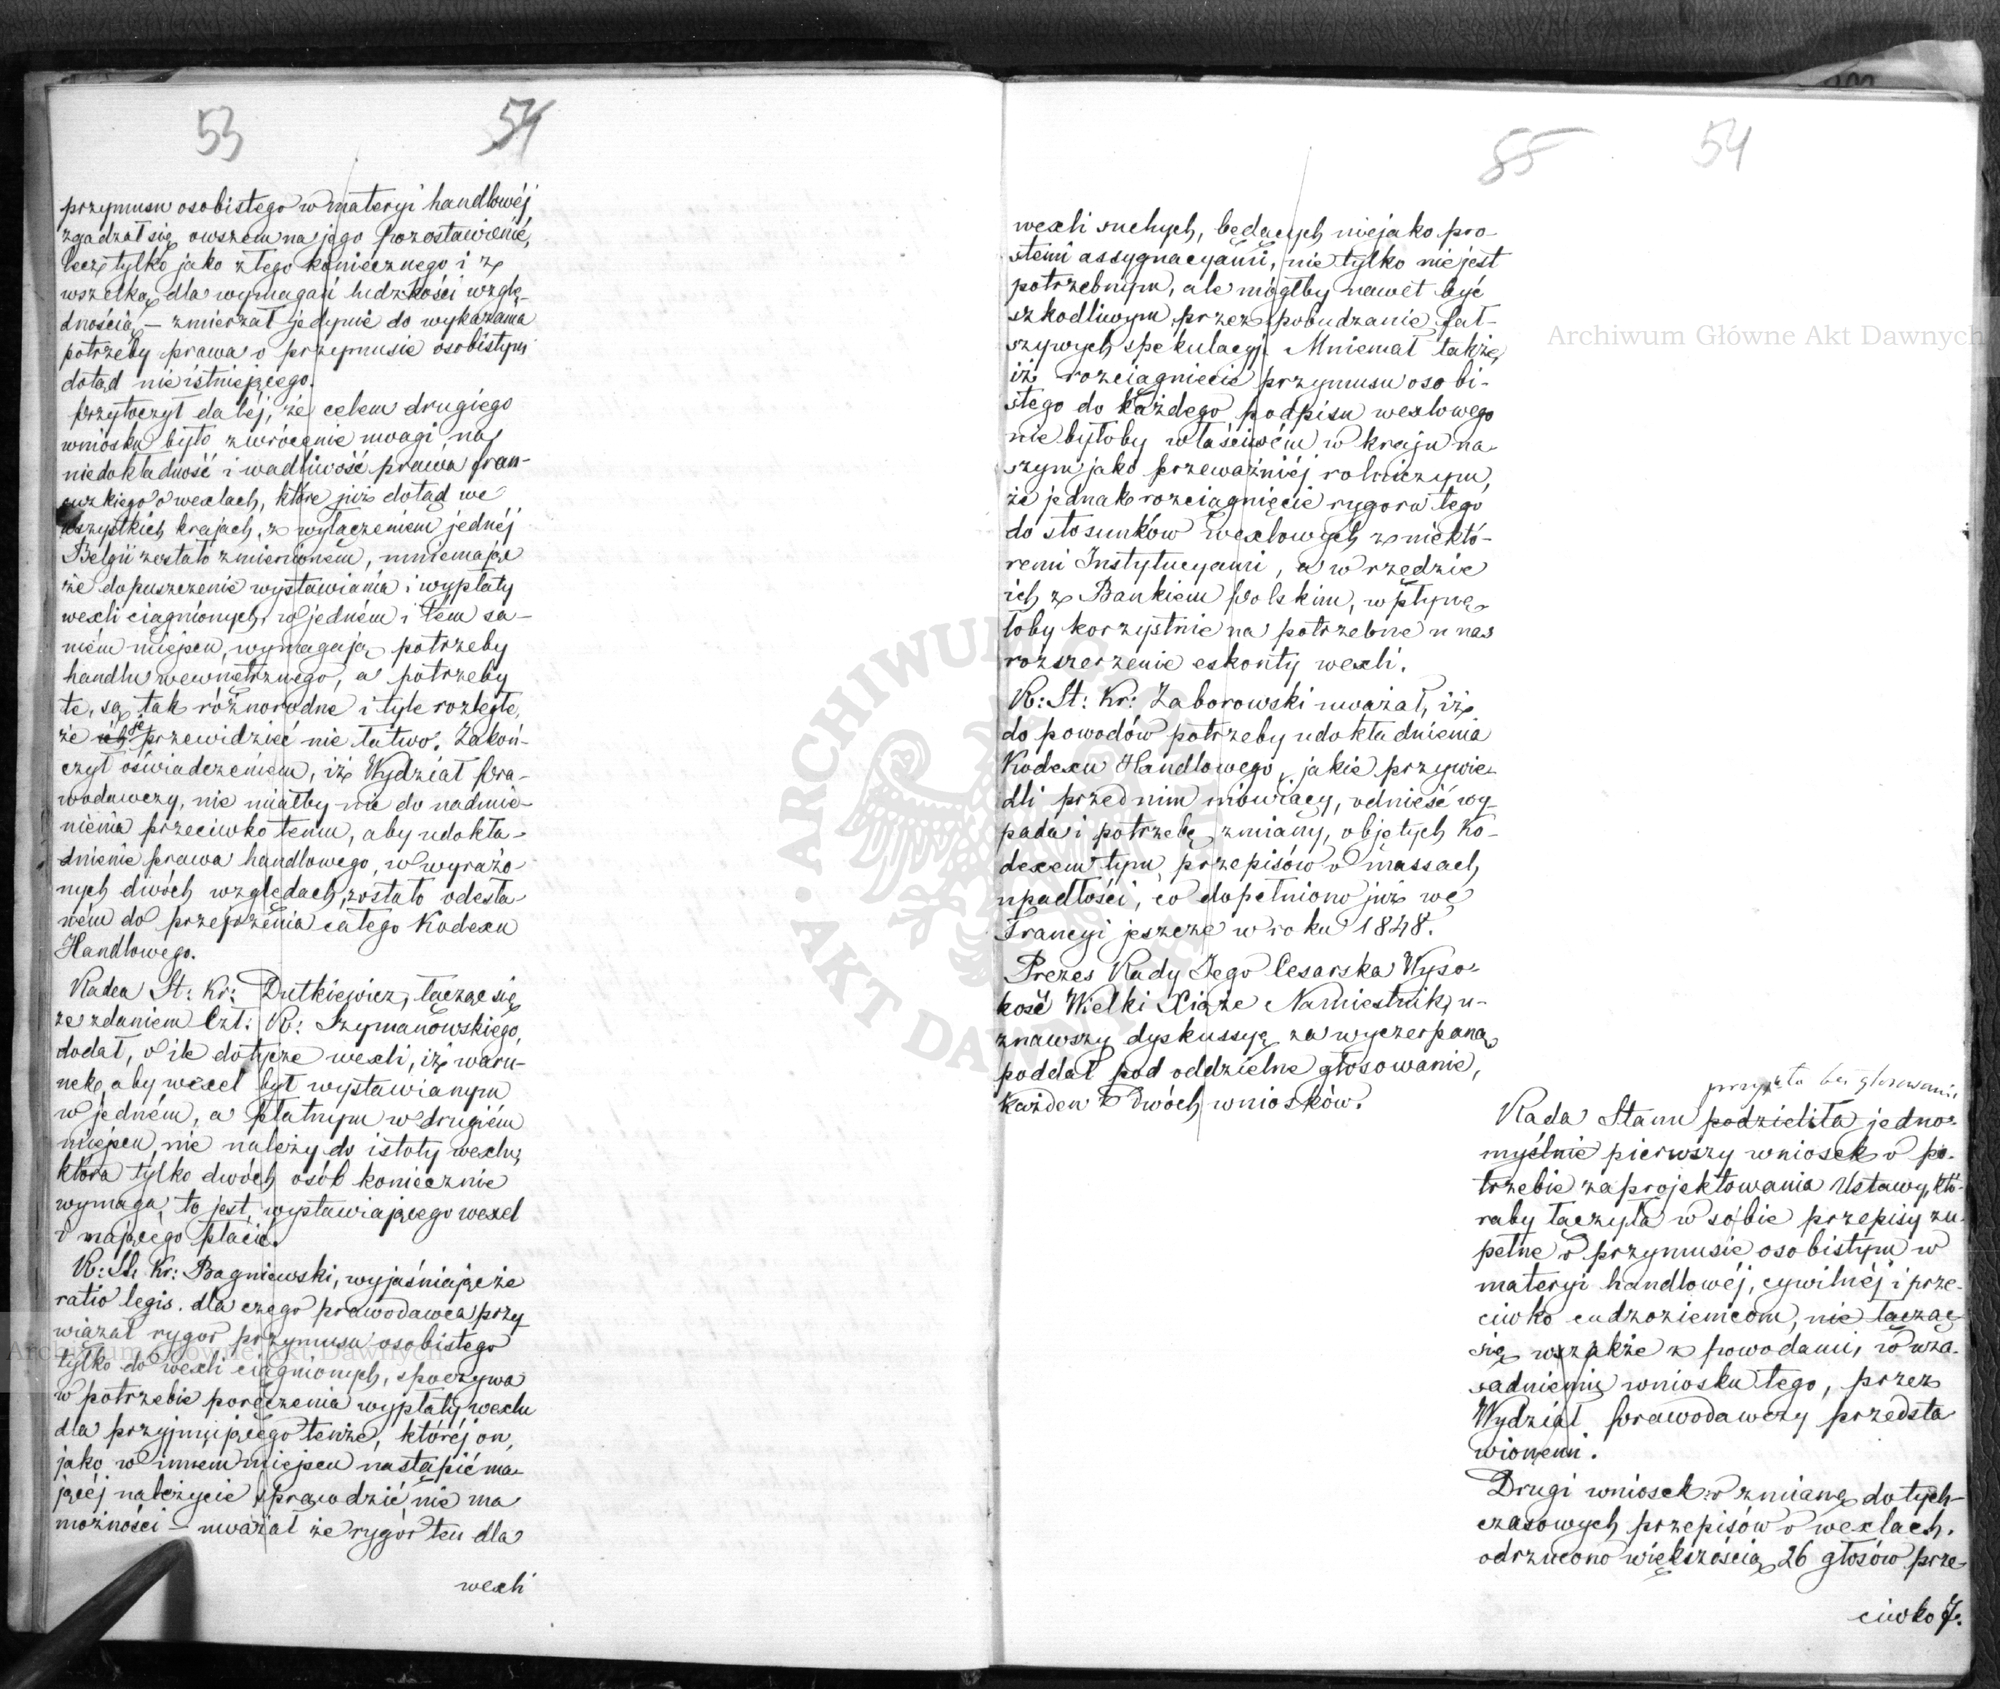 53
54
przymusu osobistego w materyi handlowéj
zgadzał się owszem na jego pozostawienie,
lecz tylko jako złego koniecznego i z
wszelką dla wymagań ludzkości wzglę-
dnością, — zmierzał jedynie do wykazania
potrzeby prawa o przymusie osobistym
dotąd nie istniejącego.
Przytoczył daléj, że celem drugiego
wniosku było zwrócenie uwagi na
niedokładność i wadliwość prawa fran-
cuzkiego o wexlach, które już dotąd we
wszystkich krajach, z wyłączeniem jednéj
Belgii zostało zmienionem, mniemając
że dopuszczenie wystawiania i wypłaty
wexli ciągnionych, w jedném i tém sa-
mém miejscu, wymagają potrzeby
handlu wewnętrznego, a potrzeby
te, są tak różnorodne i tyle rozległe,
że ich je przewidzieć nie łatwo. Zakoń-
czył oświadczeniem, iż Wydział Pra-
wodawczy, nie miałby nic do nadmie-
nienia przeciwko temu, aby udokła-
dnienie prawa handlowego, w wyrażo-
nych dwóch względach, zostało odesła-
ném do przejrzenia całego Kodexu
Handlowego.
Radca St: Kr: Dutkiewicz, łącząc się
ze zdaniem Czł: R: Szymanowskiego,
dodał, o ile dotycze wexli, iż waru-
nek, aby wexel był wystawianym
w jedném, a płatnym w drugiém
miejscu, nie należy do istoty wexlu,
która tylko dwóch osób koniecznie
wymaga, to jest, wystawiającego wexel
i mającego płacić.
R: St: Kr: Bagniewski, wyjaśniając że
ratio legis. dla czego prawodawca przy
wiązał rygor przymusu osobistego
tylko do wexli ciągnionych, spoczywa
w potrzebie poręczenia wypłaty wexlu
dla przyjmującego tenże, któréj on,
jako w innem miejscu nastąpić ma-
jącéj należycie sprawdzić nie ma
możności — uważał że rygor ten dla
wexli
55
54
wexli suchych, będących niejako pro-
stemi assygnacyami, nie tylko nie jest
potrzebnym, ale mógłby nawet być
szkodliwym przez pobudzanie fał-
szywych spekulacyj. Mniemał także,
iż rozciągniecie przymusu osobi-
stego do każdego podpisu wexlowego
nie byłoby właściwém w kraju na-
szym jako przeważniéj rolniczym,
że jednak rozciągnięcie rygoru tego
do stosunków wexlowych z niektó-
remi Instytucyami, a w rzędzie
ich z Bankiem Polskim, wpłynę-
łoby korzystnie na potrzebne u nas
rozszerzenie eskonty wexli.
R: St: Kr: Zaborowski uważał, iż
do powodów potrzeby udokładnienia
Kodexu Handlowego, jakie przywie-
dli przed nim mówiący, odnieść wy-
pada i potrzebę zmiany, objętych Ko-
dexem tym, przepisów o massach
upadłości, co dopełniono już we
Francyi jeszcze w roku 1848.
Prezes Rady Jego Cesarska Wyso-
kość Wielki Xiąże Namiestnik, u-
znawszy dyskussyę za wyczerpaną,
poddał pod oddzielne głosowanie,
każden z dwóch wniosków.
przyjęła bez głosowania
Rada Stanu podzieliła jedno-
myślnie pierwszy wniosek o po-
trzebie zaprojektowania Ustawy, któ-
raby łączyła w sobie przepisy zu-
pełne o przymusie osobistym w
materyi handlowéj, cywilnéj i prze-
ciwko cudzoziemcom, nie łącząc
się wszakże z powodami, w uza-
sadnieniu wniosku tego, przez
Wydział Prawodawczy przedsta
wionemi.
Drugi wniosek o zmianę dotych-
czasowych przepisów o wexlach.
odrzucono większością 26 głosów prze-
ciwko 7.
Archiwum Główne Akt Dawnych
Archiwum Główne Akt Dawnych
ARCHIWUM GŁÓWNE AKT DAWNYCH